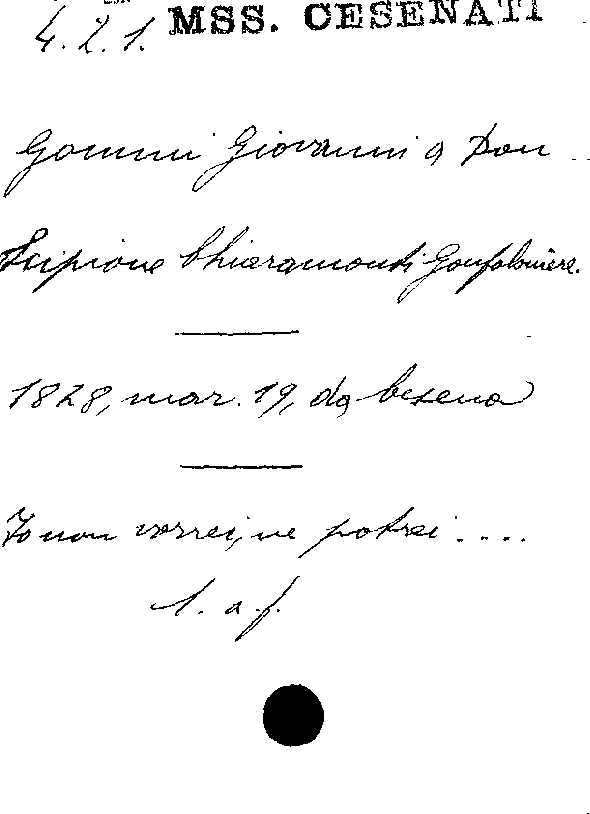 4.2.1. MSS. CESENATI
Gommi Giovanni a Don
Scipione Chiaramonti Gonfaloniere.
1828, mar. 19, da Cesena
Io non vorrei, ne potrei ....
l. a. f.